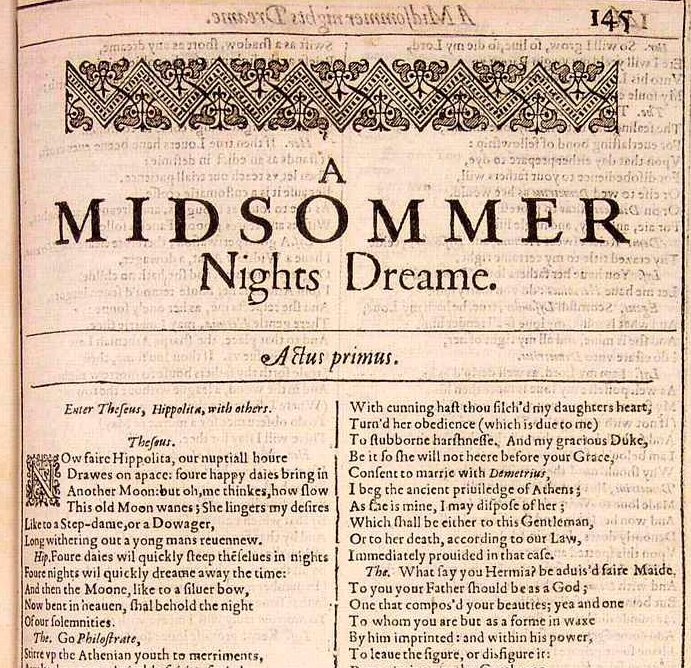 145
A
MIDSOMMER
Nights Dreame.
Actus primus.
Enter Theſeus, Hippolita, with others.
Theſeus.
NOw faire Hippolita, our nuptiall houre
Drawes on apace: foure happy daies bring in
Another Moon: but oh, me thinkes, how ſlow
This old Moon wanes; She lingers my deſires
Like to a Step-dame, or a Dowager,
Long withering out a yong mans reuennew.
Hip. Foure daies wil quickly ſteep thēſelues in nights
Foure nights wil quickly dreame away the time:
And then the Moone, like to a ſiluer bow,
Now bent in heauen, ſhal behold the night
Of our ſolemnities.
The. Go Philoſtrate,
Stirre vp the Athenian youth to merriments,
With cunning haſt thou filch'd my daughters heart,
Turn'd her obedience (which is due to me)
To ſtubborne harſhneſſe. And my gracious Duke,
Be it ſo ſhe will not heere before your Grace,
Conſent to marrie with Demetrius,
I beg the ancient priuiledge of Athens;
As ſhe is mine, I may diſpoſe of her;
Which ſhall be either to this Gentleman,
Or to her death, according to our Law,
Immediately prouided in that caſe.
The. What ſay you Hermia? be aduis'd faire Maide,
To you your Father ſhould be as a God;
One that compos'd your beauties; yea and one
To whom you are but as a forme in waxe
By him imprinted: and within his power,
To leaue the figure, or disfigure it: